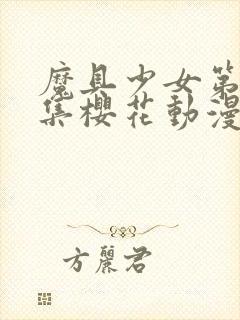 魔具少女第
集櫻花動漫
方麗君